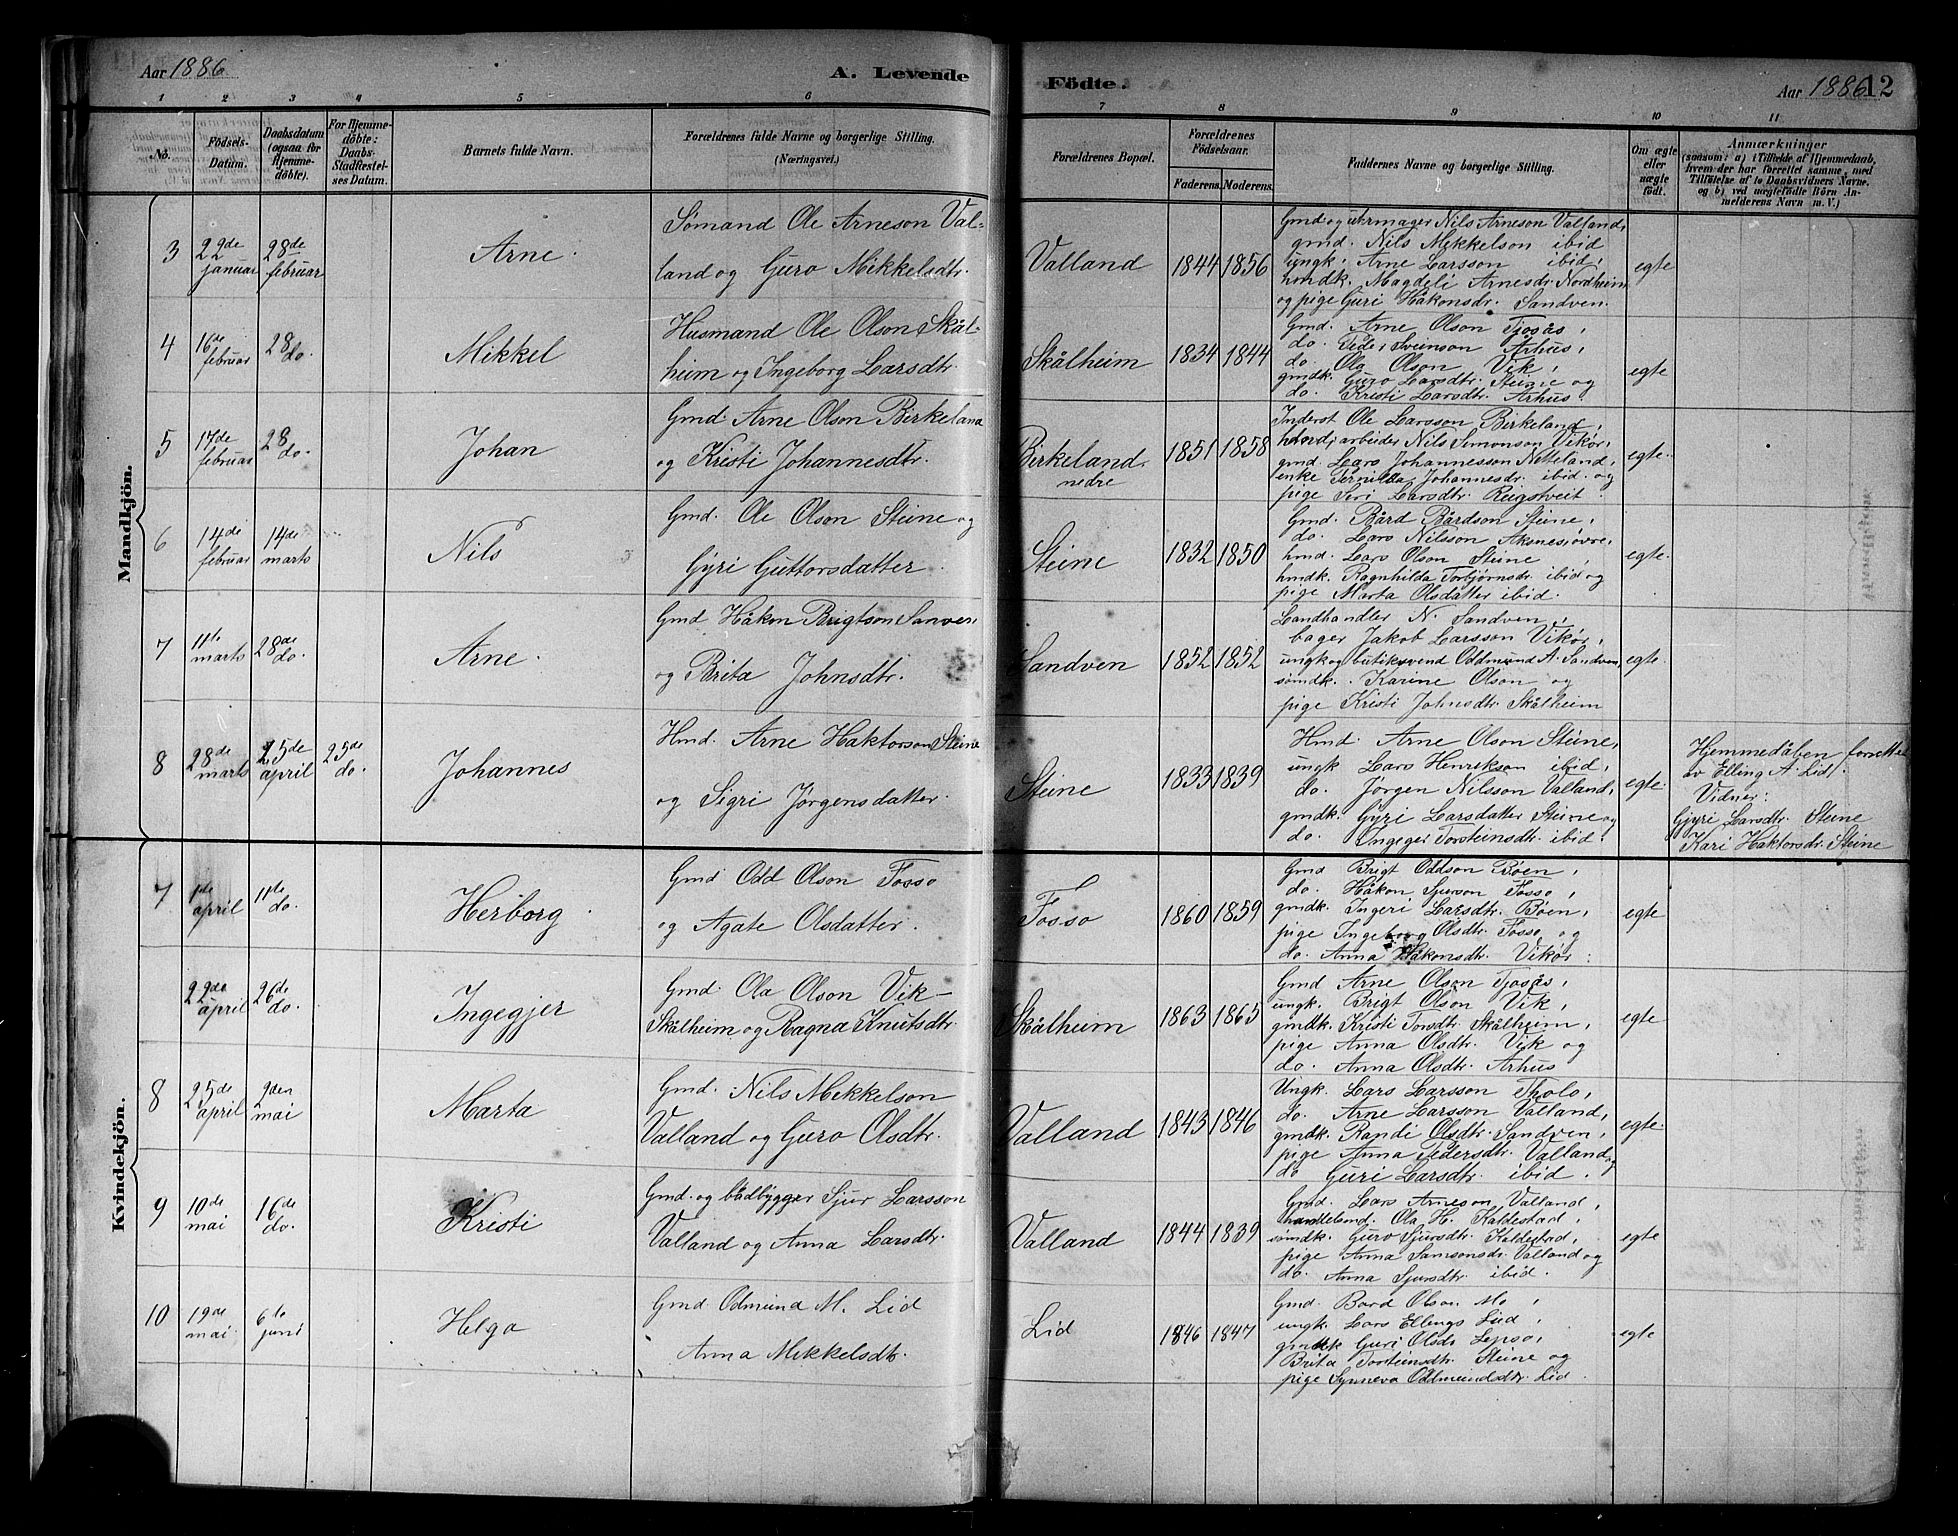 Aar 1886 A. Levende Födte. Aar 1886 12
1 2 3 4 5 6 7 8 9 10 11
No. Födsels-Datum. Daabsdatum (ogsaa for Hjemme-döbte). For Hjemme-döbte: Daabs-Stadfæstel-ses Datum. Barnets fulde Navn. Forældrenes fulde Navne og borgerlige Stilling. (Næringsvei.) Forældrenes Bopæl. Forældrenes Födselsaar. Faderens. Moderens. Faddernes Navne og borgerlige Stilling. Om ægte eller uægte födt. Anmærkninger (saasom: a) i Tilfælde af Hjemmedaab, hvem der har forrettet samme, med Tilföielse af to Daabsvidners Navne. og b) ved uægtefödte Börn An-melderens Navn m. V.)
Mandkjön.
3 22de januar 28de februar Arne.
Sømand Ole Arneson Val-
land og Guro Mikkelsdtr.
Valland 1844 1856
Gmd og uhrmager Nils Arneson Valland,
gmd. Nils Mikkelson ibid
ungk. Arne Larsson ibid,
hmdk. Magdeli Arnesdr. Nordheim
og pige Guri Håkonsdr. Sandven.
egte
4 16de februar 28 do. Mikkel
Husmand Ole Olson Skål-
heim og Ingeborg Larsdtr.
Skålheim 1834 1844
Gmd. Arne Olson Tjosås,
do. Peder Sveinson Arhus,
do. Ola Olson Vik,
gmdk. Guro Larsdtr. Steine og
do. Kristi Larsdtr. Arhus.
egte
5 17de februar 28 do. Johan
Gmd. Arne Olson Birkeland
og Kristi Johannesdtr.
Birkeland nedre 1851 1858
Inderst Ole Larsson Birkeland,
arbeider Nils Simonson Vikør,
gmd. Lars Johannesson Netteland,
enke Pernilda Johannesdr. ibid. og
pige Siri Larsdtr. Reigstveit.
egte.
6 14de februar 14de marts Nils
Gmd. Ole Olson Steine og
Gyri Guttorsdatter.
Steine 1832 1850
Gmd. Bård Bårdson Steine,
do. Lars Nilsson Aksnes, øvre,
hmd. Lars Olson Steine,
hmdk. Ragnhilda Torbjørnsdr. ibid og
pige Marta Olsdatter ibid.
egte.
7 11te marts 28de do. Arne.
Gmd Håkon Brigtson Sanven
og Brita Johnsdtr.
Sandven 1852 1852
Landhandler N. Sandven,
bager Jakob Larsson Vikør,
ungk og butiksvend Oddmund A. Sandven,
sømdk. Karine Olson og
pige Kristi Johnsdtr. Skålheim
egte.
8 28de marts 25de april 25de do. Johannes
Hmd. Arne Haktorson Steine
og Sigri Jørgensdatter.
Steine 1833 1839
Hmd. Arne Olson Steine,
ungk Lars Henrikson ibid,
do. Jørgen Nilsson Valland,
gmdk. Gyri Larsdatter Steine og
do. Ingeger Torsteinsdtr. ibid.
egte.
Hjemmedåben forrettet
av Elling A. Lid.
Vidner:
Gjyri Larsdtr. Steine
Kari Haktorsdr. Steine
Kvindekjön.
7 1ste april 11te do. Herborg.
Gmd Odd Olson Fosso
og Agate Olsdatter.
Fosso 1860 1859
Gmd Brigt Oddson Bøen,
do. Håkon Sjurson Fosso,
gmdk. Ingeri Larsdtr. Bøen,
pige Ingeborg Olsdtr. Fosso og
do. Anna Håkonsdtr. Vikør.
egte
22de april 26de do. Ingegjer
Gmd. Ola Olson Vik-
Skålheim og Ragna Knutsdtr.
Skålheim 1863 1865
Gmd Arne Olson Tjosås,
ungk. Brigt Olson Vik,
gmdk. Kristi Torsdtr. Skålheim,
pige Anna Olsdtr. Vik og
do. Anna Olsdtr. Arhus
egte
8 25de april 2den mai Marta
Gmd. Nils Mekkelson
Valland og Guro Olsdtr.
Valland 1843 1846
Ungk. Lars Larsson Tholo,
do. Arne Larsson Valland,
gmdk. Randi Olsdtr. Sandven,
pige Anna Pedersdtr. Valland og
do Guri Larsdtr. ibid.
egte.
9 10de mai 16de do. Kristi
Gmd. og bådbygger Sjur Larsson
Valland og Anna Larsdtr.
Valland 1844 1839
Gmd. Lars Arneson Valland,
handeland. Ola H. Kaldestad,
sømdk. Guro Sjursdtr. Kaldestad,
pige Anna Samsonsdr. Valland og
do. Anna Sjursdtr. ibid.
egte
10 19de mai. 6te juni Helga
Gmd Odmund M. Lid
Anna Mikkelsdtr.
Lid 1846 1847
Gmd. Bård Olson Mo,
ungk. Lars Ellings Lid,
gmdk Guri Olsdr Lepso,
Brita Torsteinsdtr. Steine og
pige Synneva Oddmundsdtr. Lid.
egte